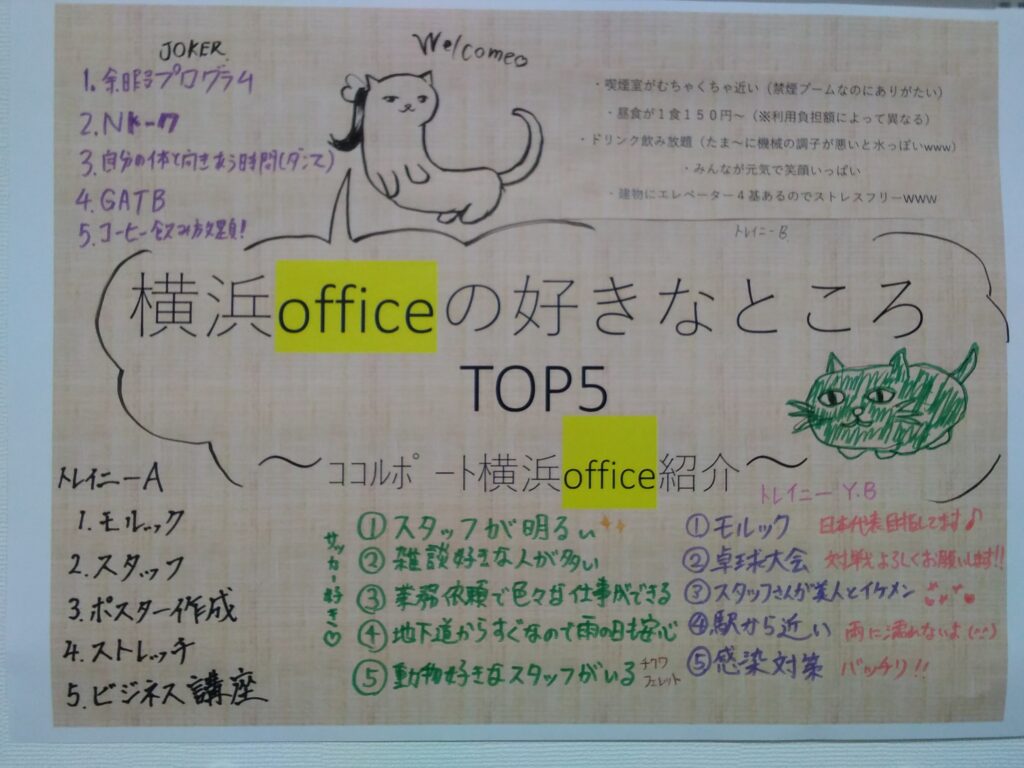 JOKER
1.余暇プログラム
2.Nトーク
3.自分の体と向きあう時間(ダンス)
4.GATB
5.コーヒー飲み放題!
Welcome
・喫煙室がむちゃくちゃ近い（禁煙ブームなのにありがたい）
・昼食が１食１５０円～（※利用負担額によって異なる）
・ドリンク飲み放題（たま～に機械の調子が悪いと水っぽいwww）
・みんなが元気で笑顔いっぱい
・建物にエレベーター４基あるのでストレスフリーwww
トレイニーB
横浜officeの好きなところ
TOP5
～ココルポート横浜office紹介～
トレイニーA
1.モルック
2.スタッフ
3.ポスター作成
4.ストレッチ
5.ビジネス講座
サッカー好き♡
①スタッフが明るい
②雑談好きな人が多い
③業務依頼で色々な仕事ができる
④地下道からすぐなので雨の日も安心
⑤動物好きなスタッフがいる
チワワ
フェレット
トレイニーY.B
①モルック 日本代表目指してます♪
②卓球大会 対戦よろしくお願いします!!
③スタッフさんが美人とイケメン
④駅から近い 雨に濡れないよ(^^)
⑤感染対策 バッチリ!!